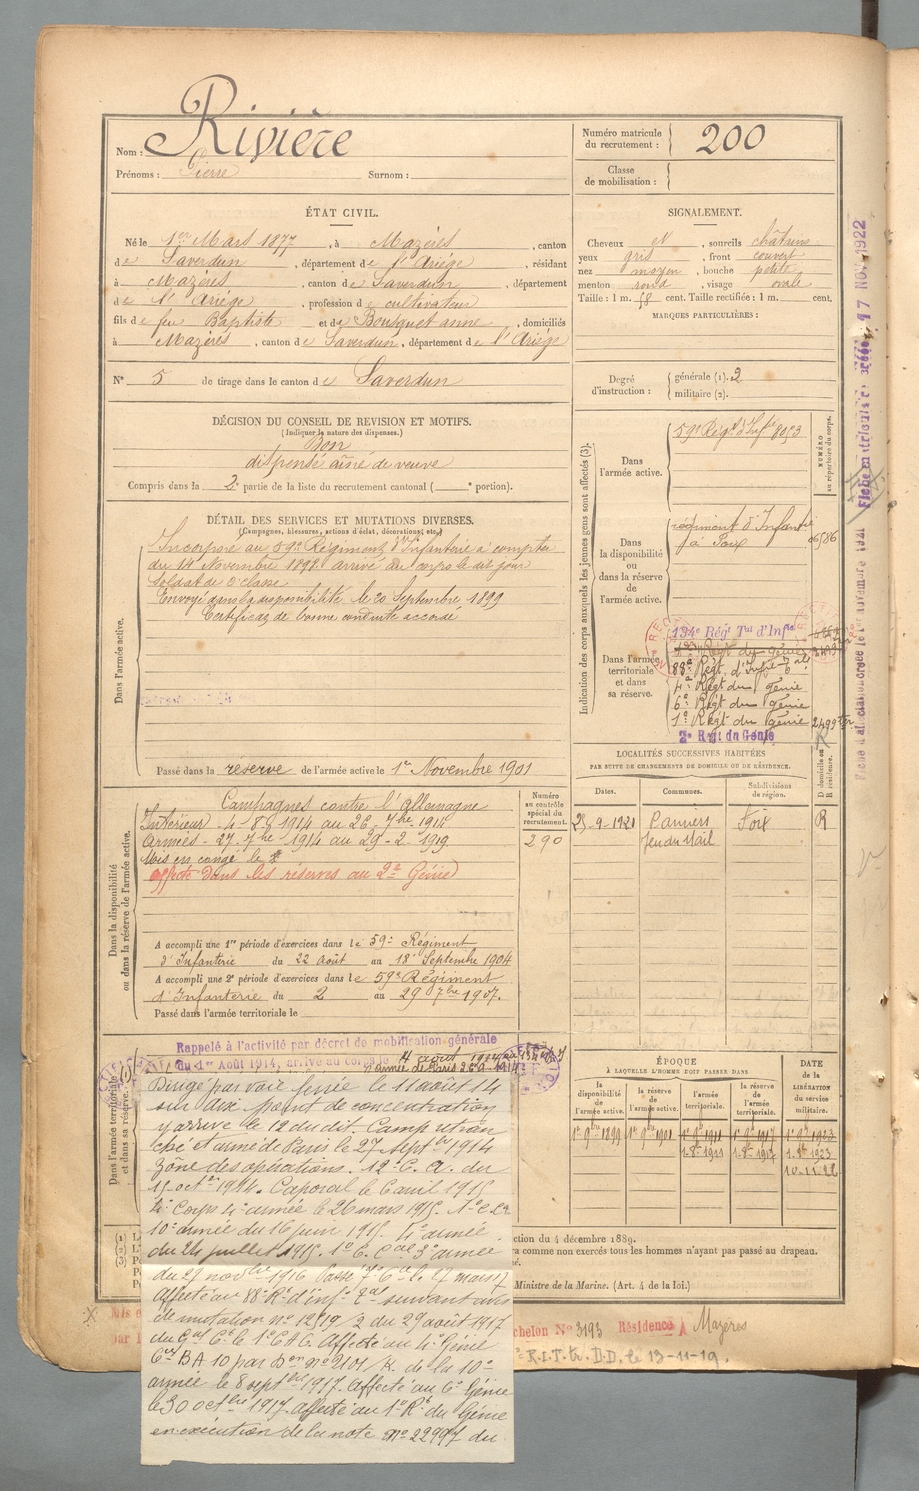 Nom : Rivière
Prénoms : Pierre Surnom :
Numéro matricule du recrutement : 200
Classe de mobilisation :
ÉTAT CIVIL.
Né le 1er Mars 1877, à Mazères, canton
de Saverdun, département de l'Ariége, résidant
à Mazères, canton de Saverdun, département
de l'Ariége, profession de cultivateur
fils de feu Baptiste et de Bousquet anne, domiciliés
à Mazères, canton de Saverdun, département de l'Ariége
N° 5 de tirage dans le canton de Saverdun
SIGNALEMENT.
Cheveux et, sourcils châtains
yeux gris, front couvert
nez moyen, bouche petite
menton rond, visage ovale
Taille : 1 m. 58 cent. Taille rectifiée : 1 m. cent.
MARQUES PARTICULIÈRES :
Degré d'instruction : générale (1). 2
militaire (2).
DÉCISION DU CONSEIL DE REVISION ET MOTIFS.
(Indiquer la nature des dispenses.)
Bon
dispensé aîné de veuve
Compris dans la 2e partie de la liste du recrutement cantonal ( e portion).
DÉTAIL DES SERVICES ET MUTATIONS DIVERSES.
(Campagnes, blessures, actions d'éclat, décorations, etc.)
Dans l'armée active.
Incorporé au 59e Régiment d'Infanterie à compter
du 14 Novembre 1898 arrivé au corps le dit jour
soldat de 2e classe
Envoyé dans la disponibilité le 20 Septembre 1899
Certificat de bonne conduite accordé
Passé dans la réserve de l'armée active le 1er Novembre 1901
Indication des corps auxquels les jeunes gens sont affectés (3).
NUMÉRO au répertoire du corps.
Dans l'armée active.
59e Régt d'Infie 8053
Dans la disponibilité ou dans la réserve de l'armée active.
régiment d'Infanterie
à Foix
06586
Dans l'armée territoriale et dans sa réserve.
134e Régt Tal d'Infie
88e Régt d'Infie Tale
4e Régt du Génie
6e Régt du Génie
1er Régt du Génie
2e Régt du Génie
Fiche matriculaire créée 17 NOV 1922
LOCALITÉS SUCCESSIVES HABITÉES
PAR SUITE DE CHANGEMENTS DE DOMICILE OU DE RÉSIDENCE.
Dates. Communes. Subdivisions de région. D domicile ou R résidence.
25-9-1921 Pamiers Foix R
Jeu du Mail
Dans la disponibilité ou dans la réserve de l'armée active.
Numéro au contrôle spécial du recrutement.
290
Campagnes contre l'Allemagne
Intérieur - 4-8-1914 au 26-7bre 1914
Armées - 27-7bre 1914 au 29-2-1919
Mis en congé le
affecté dans les réserves au 2e Génie
A accompli une 1re période d'exercices dans le 59e Régiment
d'Infanterie du 22 août au 18 Septembre 1904
A accompli une 2e période d'exercices dans le 59e Régiment
d'Infanterie du 2 au 29 7bre 1907.
Passé dans l'armée territoriale le
Dans l'armée territoriale et dans sa réserve.
Rappelé à l'activité par décret de mobilisation générale
du 1er Août 1914, arrivé au corps le 4 août 1914
Dirigé par voie ferrée le 11 août 14
sur Aix point de concentration
y arrive le 12 du dit. Camp retran
ché et armée de Paris le 27 Septbre 1914
zône des opérations. 12e C. A. du
15 octre 1914. Caporal le 6 avril 1915
4e Corps 4e armée le 26 mars 1915. 1er C. Ce
10e armée du 16 juin 1915. 4e armée
du 24 juillet 1915. 1er C. Cal 3e armée
du 27 novbre 1916 Passé
Affecté au 88e Rt d'inf. Tal suivant avis
de mutation n° 12519/2 du 29 août 1917
Affecté au 4e Génie
Cie BA 10 par Don n° 2101/K. de la 10e
armée le 8 septbre 1917. Affecté au 6e Génie
le 30 octbre 1917 affecté au 1er Rt du Génie
en exécution de la note n° 22997 du
ÉPOQUE
À LAQUELLE L'HOMME DOIT PASSER DANS
la disponibilité de l'armée active. la réserve de l'armée active. l'armée territoriale. la réserve de l'armée territoriale. DATE de la LIBÉRATION du service militaire.
1er 9bre 1899 1er 9bre 1901 1er 9bre 1911 1er 9bre 1917 1er 9bre 1923
10-11-26
ction du 4 décembre 1889.
ra comme non exercés tous les hommes n'ayant pas passé au drapeau.
Ministre de la Marine. (Art. 4 de la loi.)
chelon N° 3193 Résidence à Mazères
R.I.T. D.D. le 13-11-19.